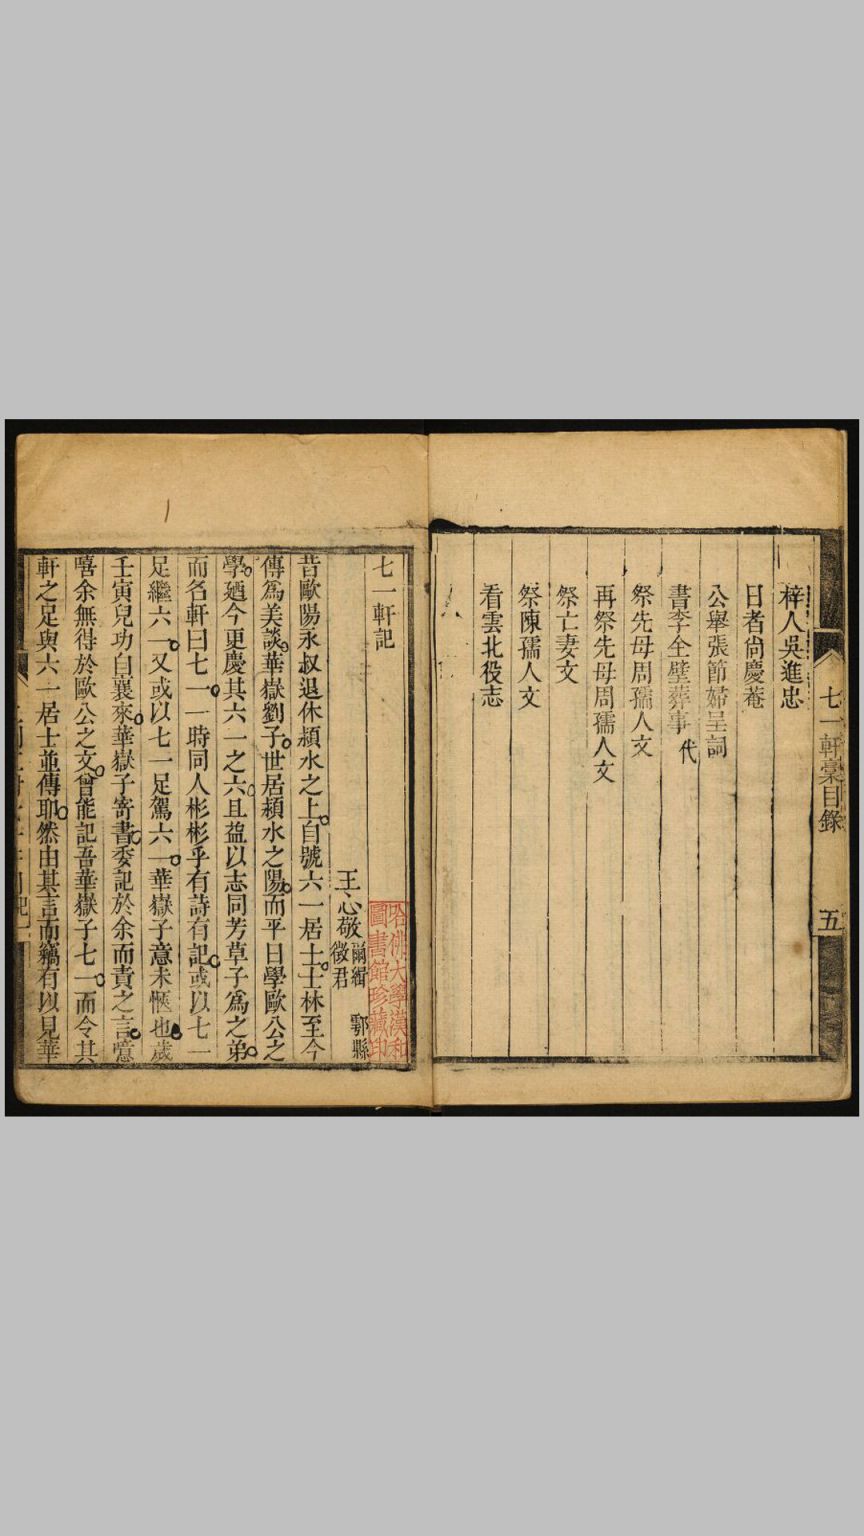 七一軒稾目錄
五
梓人吳進忠
日者尙慶菴
公舉張節婦呈詞
書李全璧葬事代
祭先母周孺人文
再祭先母周孺人文
祭亡妻文
祭陳孺人文
看雲北役志
哈佛大學漢和
圖書館珍藏印
七一軒記
王心敬爾緝徵君 鄠縣
昔歐陽永叔退休潁水之上自號六一居士士林至今
傳爲美談華嶽劉子世居潁水之陽而平日學歐公之
學廼今更慶其六一之六且益以志同芳草子爲之弟
而名軒曰七一一時同人彬彬乎有詩有記或以七一
足繼六一又或以七一足駕六一華嶽子意未愜也歲
壬寅兒功自襄來華嶽子寄書委記於余而責之言噫
嘻余無得於歐公之文曾能記吾華嶽子七一而令其
軒之足與六一居士並傳耶然由其言而竊有以見華